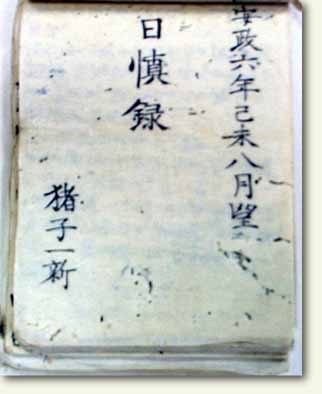 安政六年己未八月望
日慎録
猪子一新